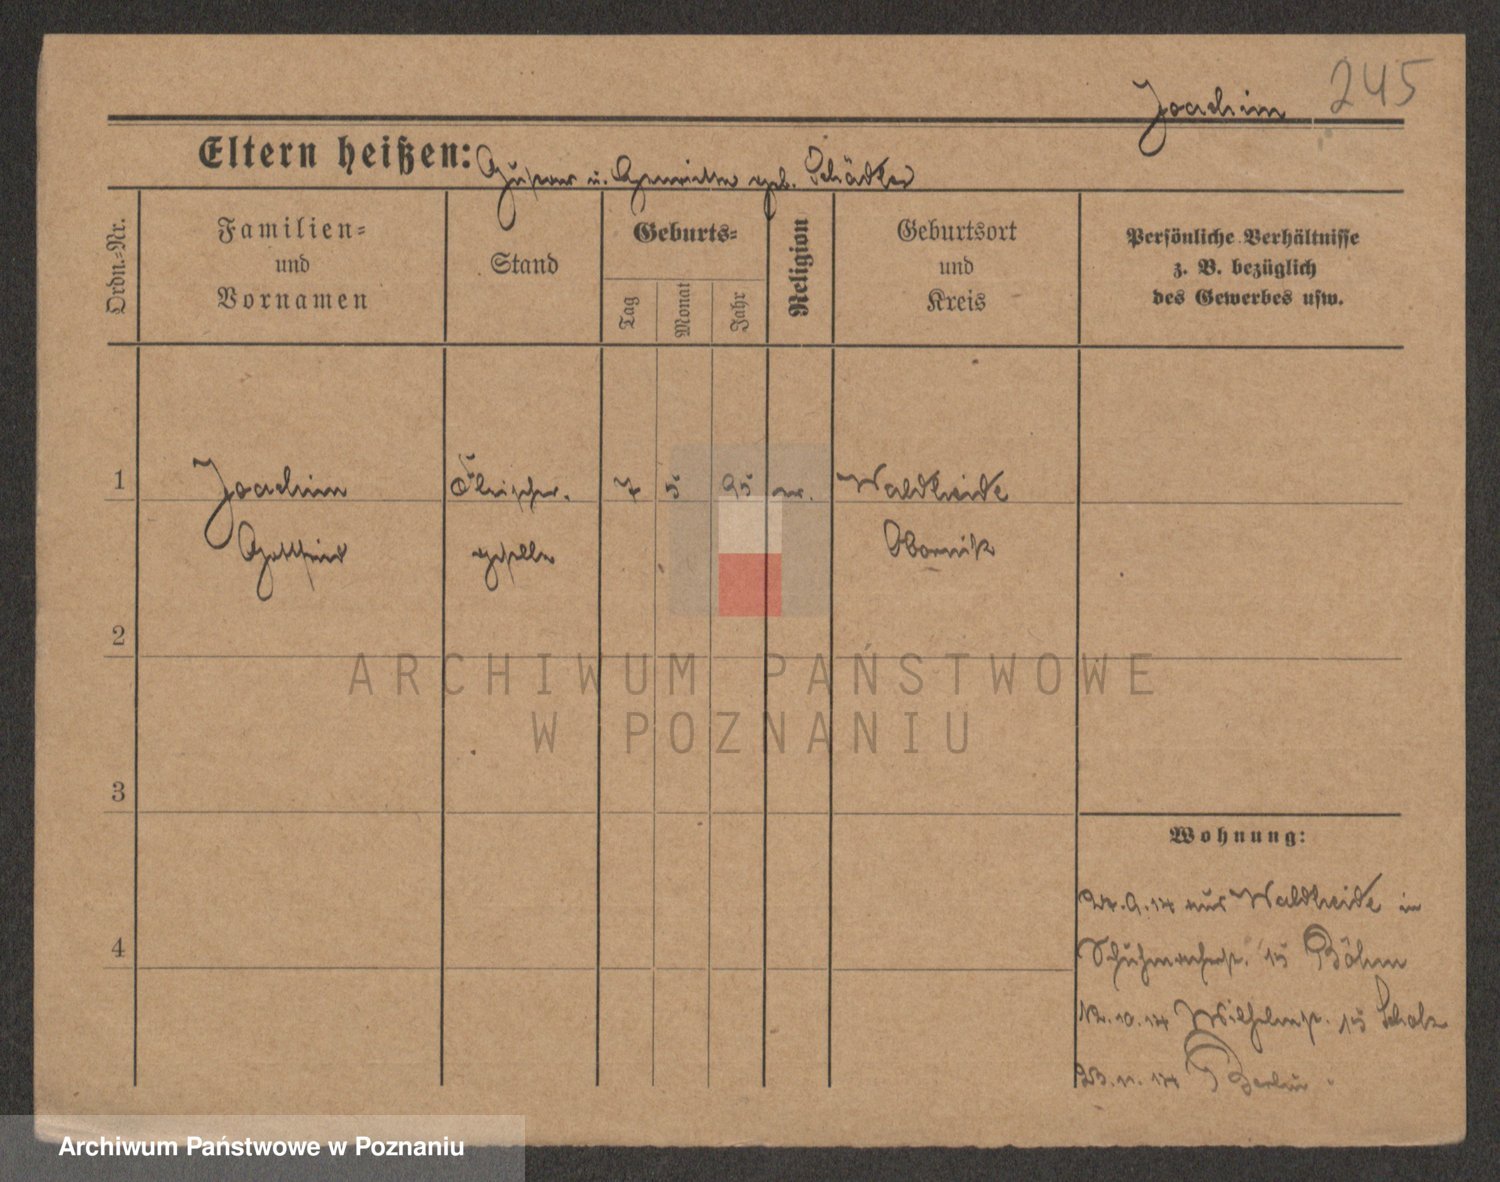 Joachim 245
Eltern heißen: Gustav u. Henriette geb. Schädler
Ordn.-Nr.
Familien-
und
Vornamen
Stand
Geburts-
Tag
Monat
Jahr
Religion
Geburtsort
und
Kreis
Persönliche Verhältnisse
z. B. bezüglich
des Gewerbes usw.
1 Joachim Fleischer- 7 5 95 ev. Waldheide
Gottfried geselle Obornik
2
3
4
Wohnung:
24.9.14 aus Waldheide in
Schuhmacherst. 15 Böhm
12.10.14 Wilhelmst. 15 Scholz
23.11.14 Berlin.
ARCHIWUM PAŃSTWOWE
W POZNANIU
Archiwum Państwowe w Poznaniu